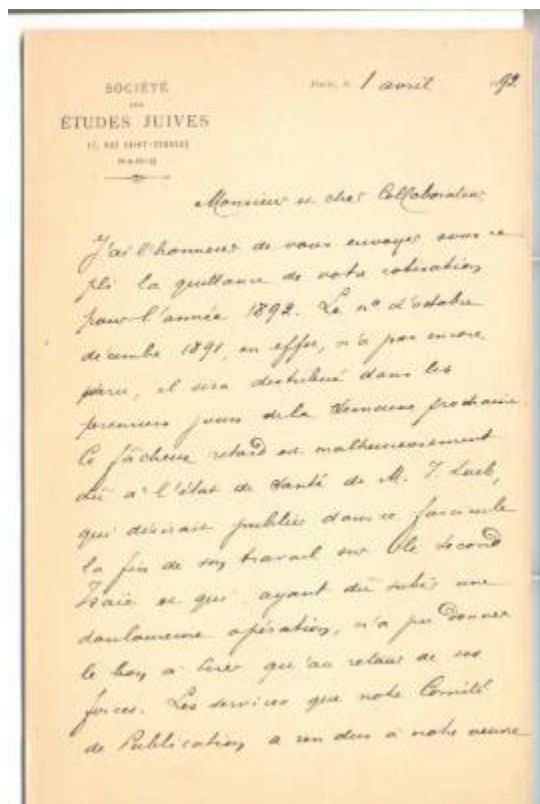 SOCIÉTÉ
DES
ÉTUDES JUIVES
17, RUE SAINT-GEORGES
PARIS
Paris, le 1 avril 1892
Monsieur et cher Collaborateur
J'ai l'honneur de vous envoyer sous ce
pli la quittance de votre cotisation
pour l'année 1892. Le n° d'octobre
décembre 1891, en effet, n'a pas encore
paru, il sera distribué dans les
premiers jours de la semaine prochaine.
Ce fâcheux retard est malheureusement
dû à l'état de santé de M. I. Loeb,
qui désirait publier dans ce fascicule
la fin de son travail sur le second
Isaïe et qui ayant dû subir une
douloureuse opération, n'a pu donner
le bon à tirer qu'au retour de ses
forces. Les services que notre Comité
de Publication a rendus à notre oeuvre